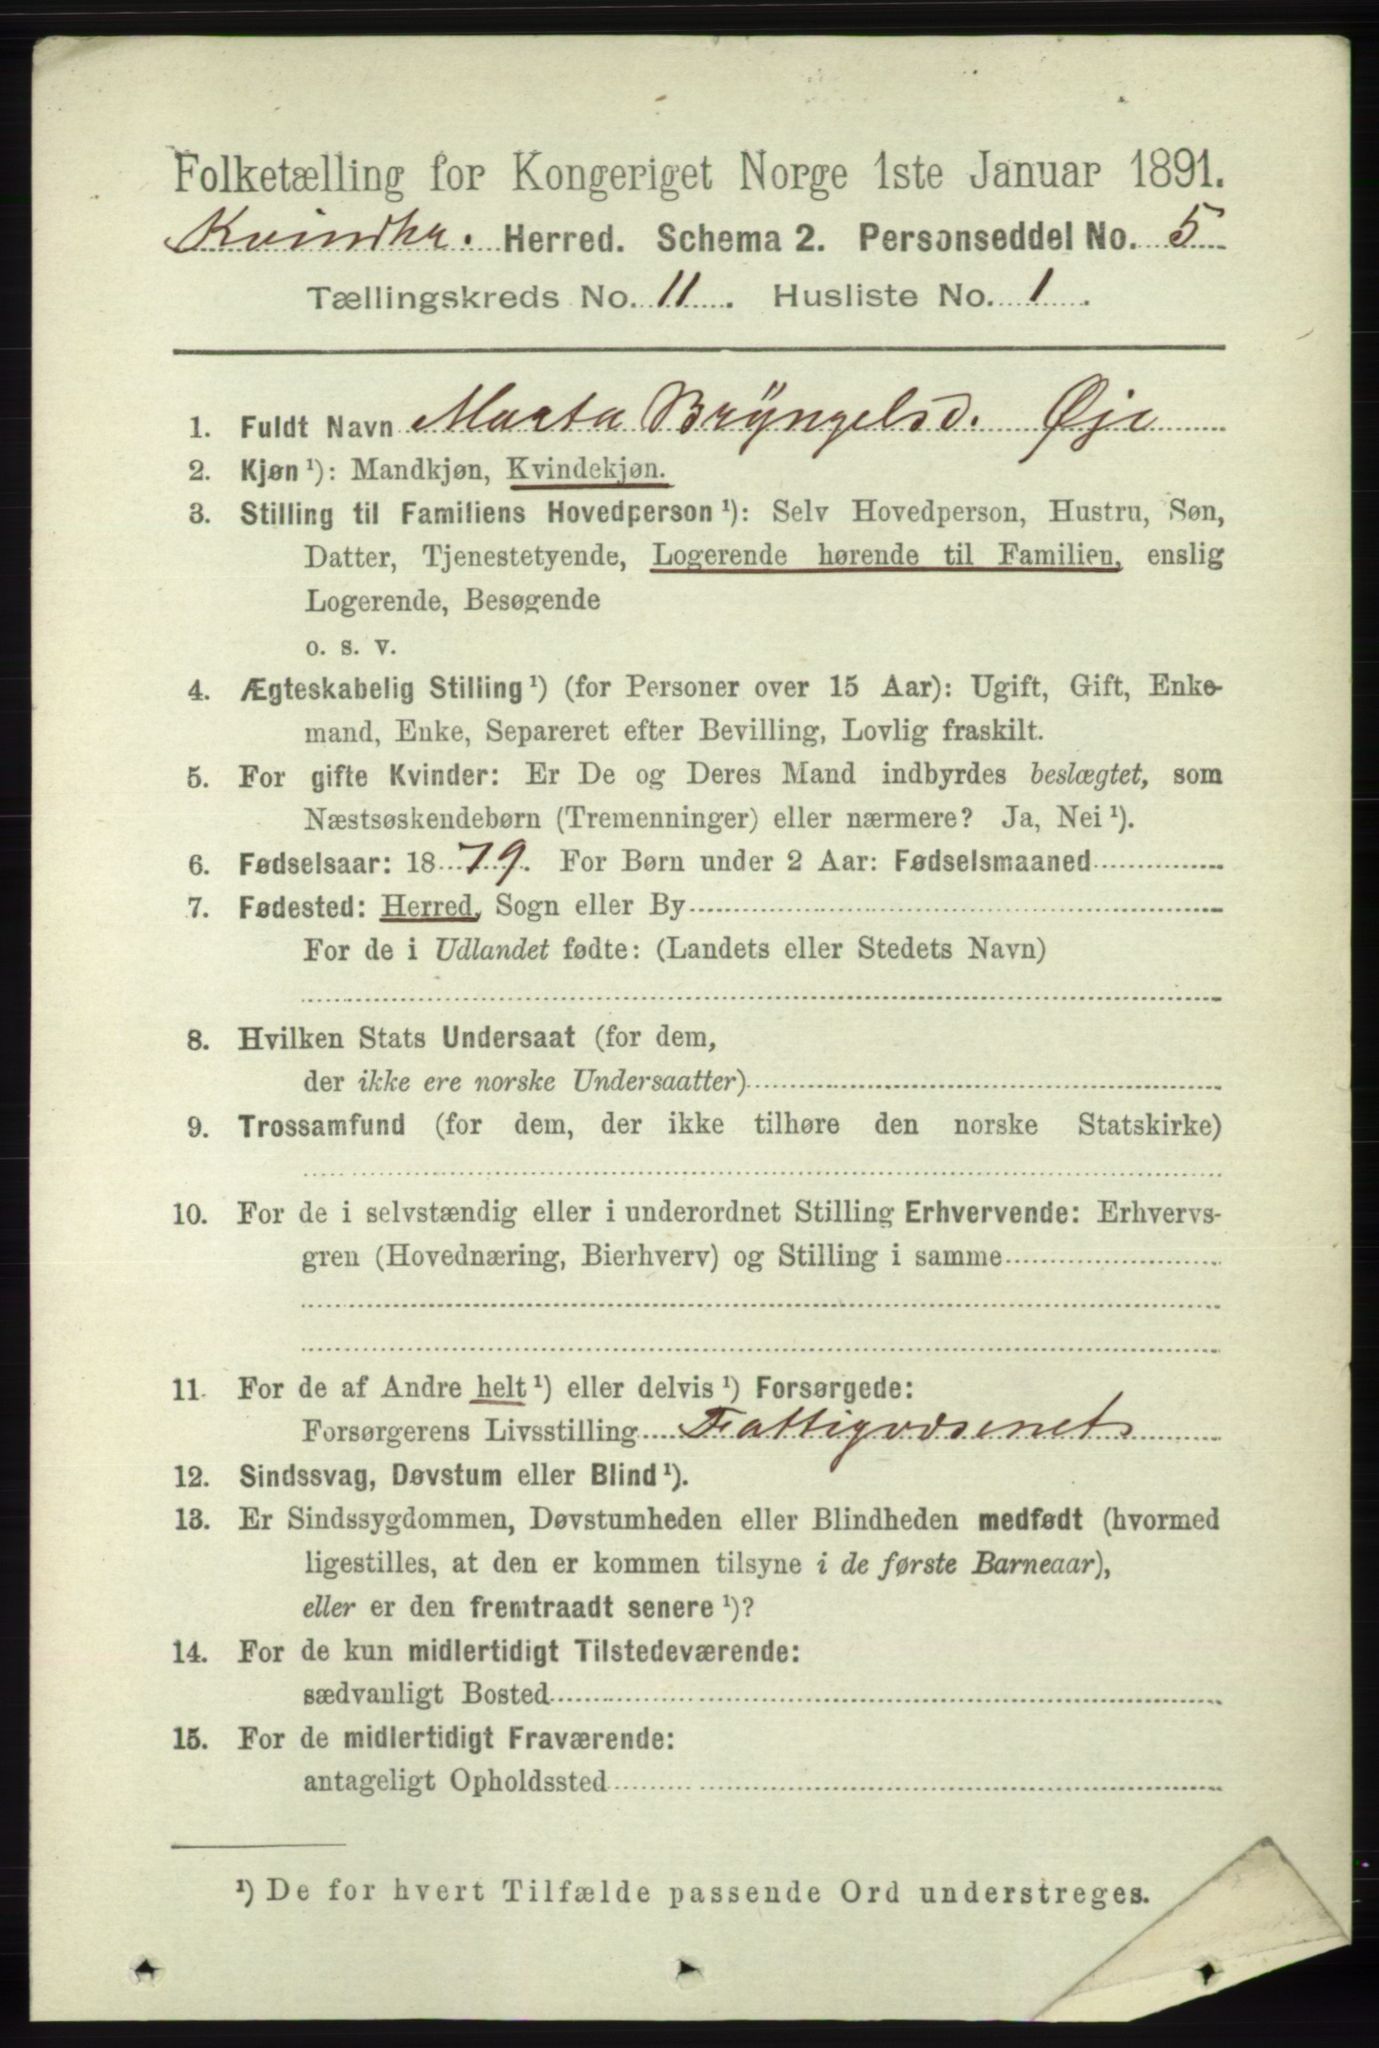 Folketælling for Kongeriget Norge 1ste Januar 1891.
Kvindhr. Herred. Schema 2. Personseddel No. 5
Tællingskreds No. 11. Husliste No. 1.
1. Fuldt Navn Marta Brÿngelsd. Øje
2. Kjøn ¹): Mandkjøn, Kvindekjøn.
3. Stilling til Familiens Hovedperson ¹): Selv Hovedperson, Hustru, Søn,
Datter, Tjenestetyende, Logerende hørende til Familien, enslig
Logerende, Besøgende
o. s. v.
4. Ægteskabelig Stilling ¹) (for Personer over 15 Aar): Ugift, Gift, Enke-
mand, Enke, Separeret efter Bevilling, Lovlig fraskilt.
5. For gifte Kvinder: Er De og Deres Mand indbyrdes beslægtet, som
Næstsøskendebørn (Tremenninger) eller nærmere? Ja, Nei ¹).
6. Fødselsaar: 1879. For Børn under 2 Aar: Fødselsmaaned
7. Fødested: Herred, Sogn eller By
For de i Udlandet fødte: (Landets eller Stedets Navn)
8. Hvilken Stats Undersaat (for dem,
der ikke ere norske Undersaatter)
9. Trossamfund (for dem, der ikke tilhøre den norske Statskirke)
10. For de i selvstændig eller i underordnet Stilling Erhvervende: Erhvervs-
gren (Hovednæring, Bierhverv) og Stilling i samme
11. For de af Andre helt ¹) eller delvis ¹) Forsørgede:
Forsørgerens Livsstilling Fattigvæsenet
12. Sindssvag, Døvstum eller Blind ¹).
13. Er Sindssygdommen, Døvstumheden eller Blindheden medfødt (hvormed
ligestilles, at den er kommen tilsyne i de første Barneaar),
eller er den fremtraadt senere ¹)?
14. For de kun midlertidigt Tilstedeværende:
sædvanligt Bosted
15. For de midlertidigt Fraværende:
antageligt Opholdssted
¹) De for hvert Tilfælde passende Ord understreges.